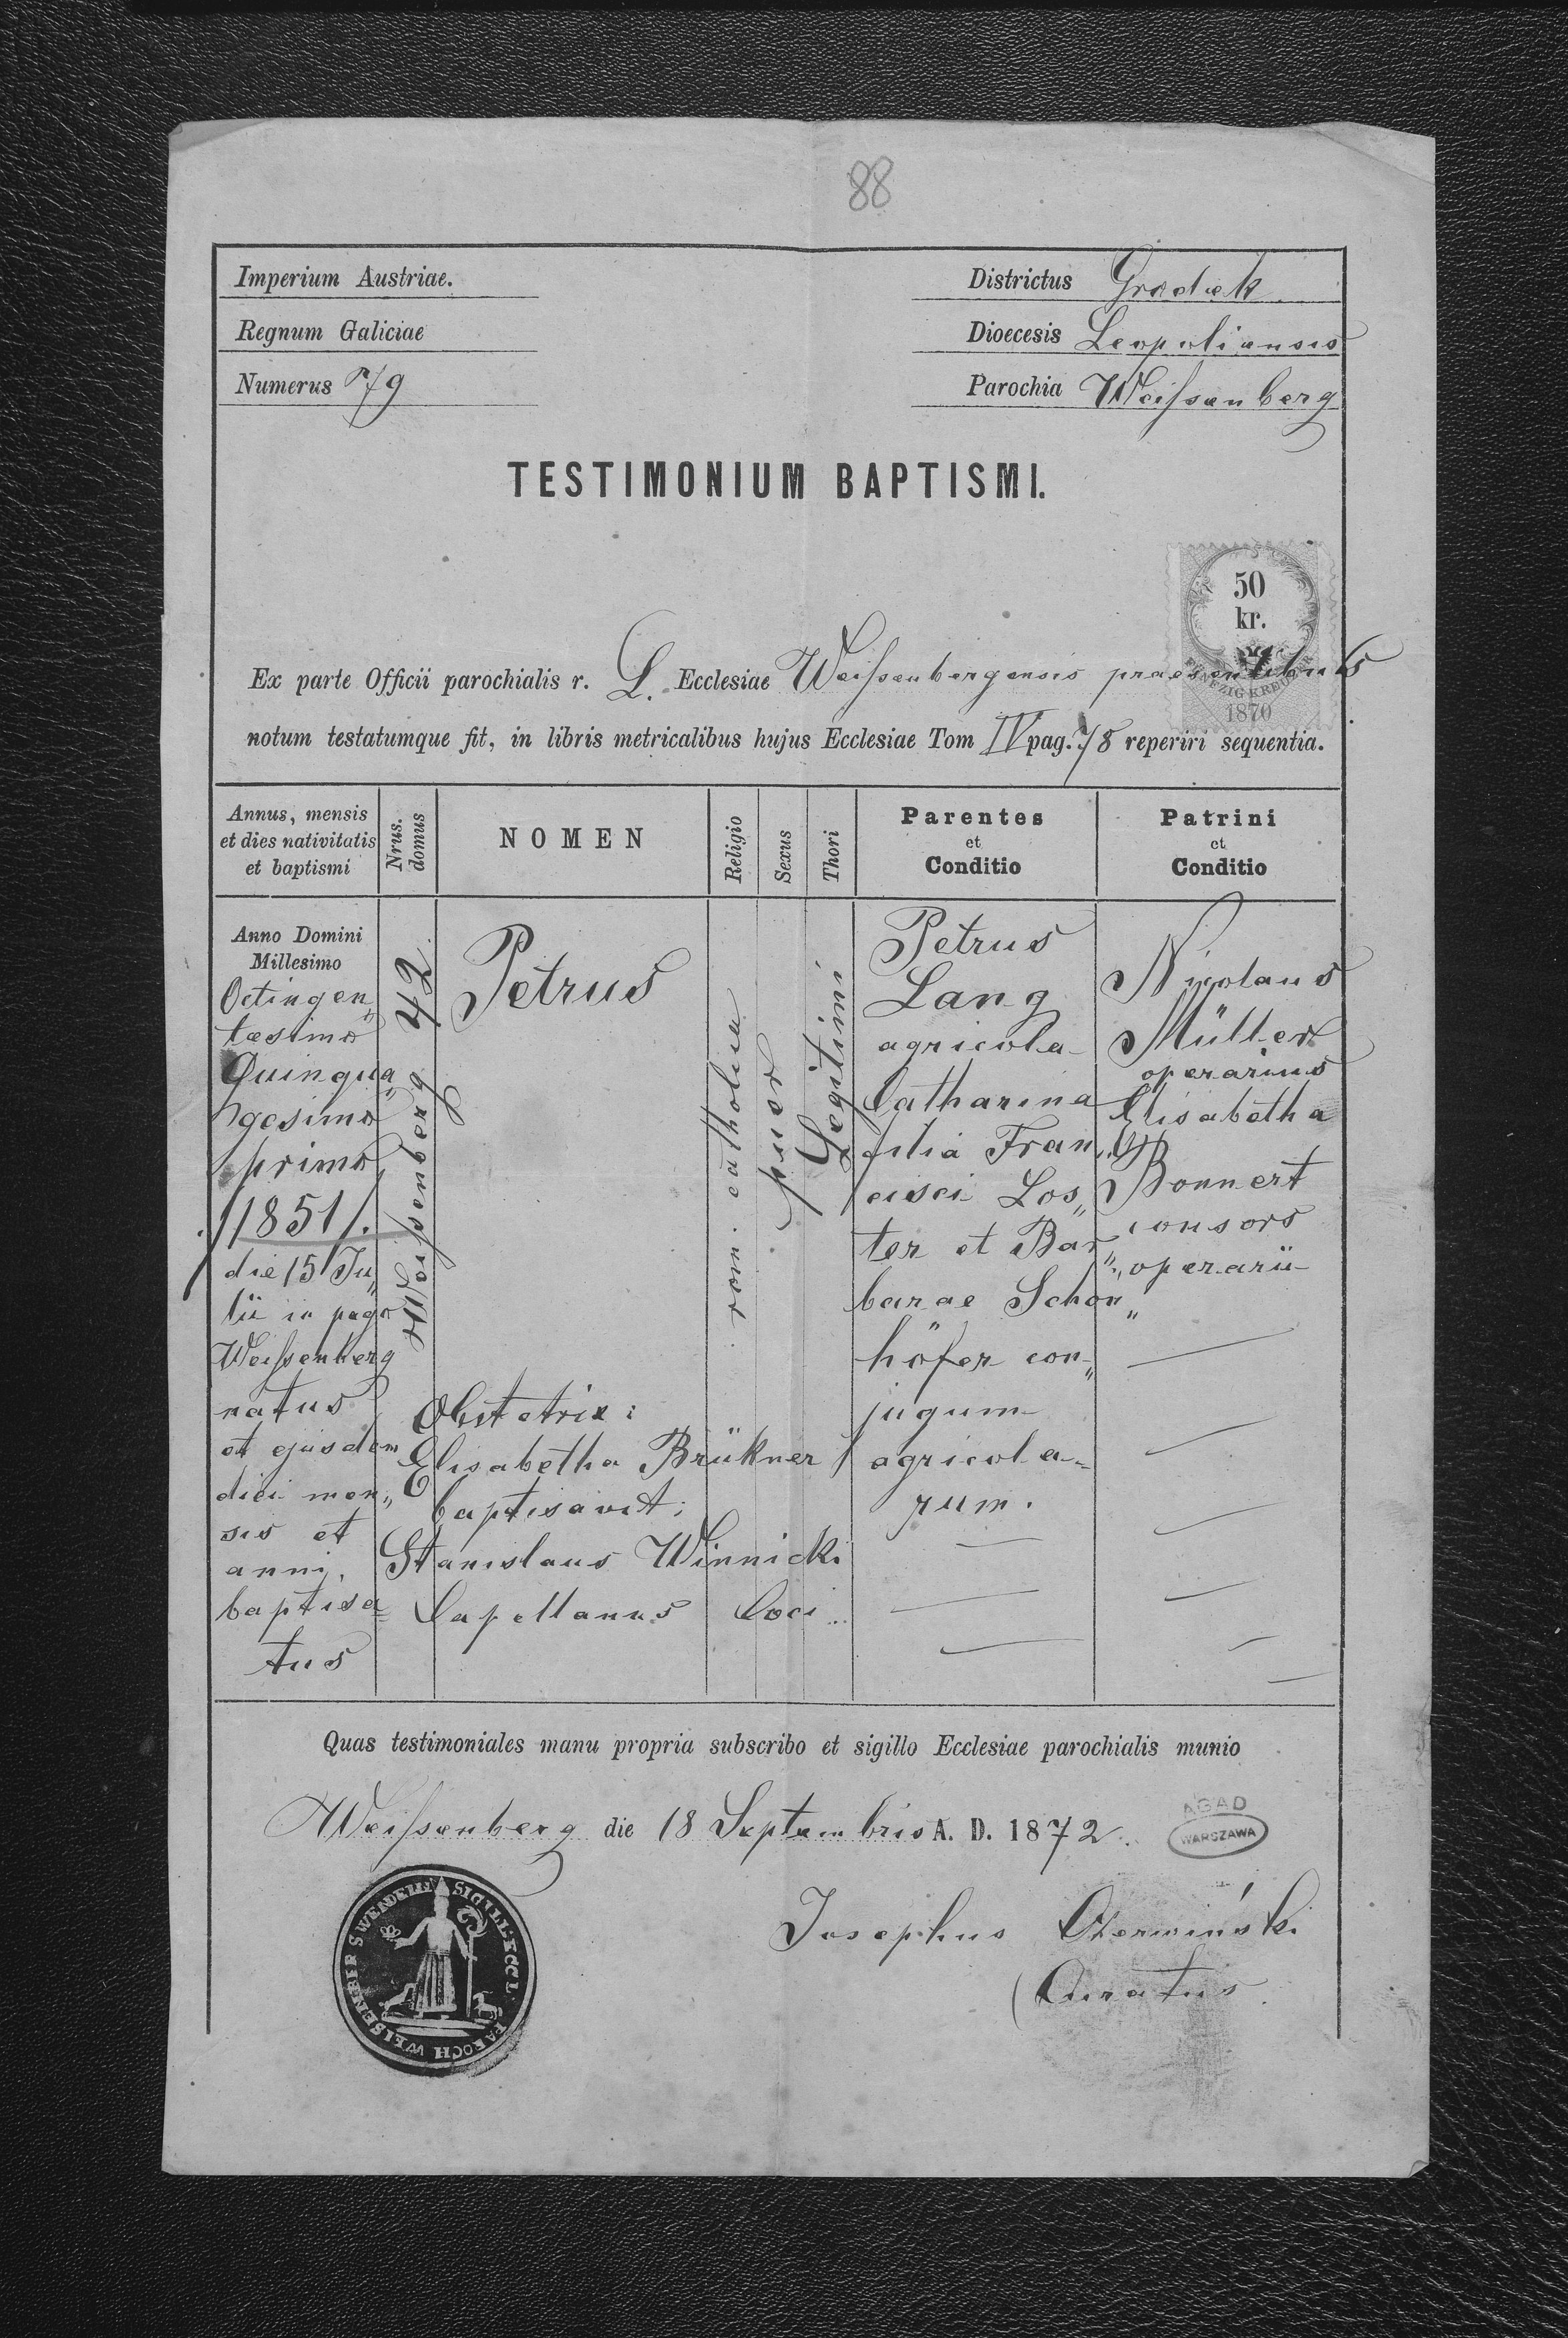 88
Imperium Austriae.
Districtus Grodek
Regnum Galiciae
Dioecesis Leopoliensis
Numerus 79
Parochia Weissenberg
TESTIMONIUM BAPTISMI.
50
kr.
FÜNFZIG KREUZER
1870
Ex parte Officii parochialis r. L. Ecclesiae Weissenbergensis praesentibus
notum testatumque fit, in libris metricalibus hujus Ecclesiae Tom IV pag. 78 reperiri sequentia.
Annus, mensis
et dies nativitatis
et baptismi
Nrus.
domus
NOMEN
Religio
Sexus
Thori
Parentes
et
Conditio
Patrini
et
Conditio
Anno Domini
Millesimo
Octingen„
tesimo
Quinqua„
gesimo
primo
/1851/.
die 15 Ju„
lii in pago
Weissenberg
natus
et ejusdem
diei men„
sis et
anni.
baptisa=
tus
Weissenberg 42
Petrus
Obstetrix:
Elisabetha Brükner
baptisavit:
Stanislaus Winnicki
Capellanus Loci
rom. catholica
puer
Legitimi
Petrus
Lang
agricola
Catharina
filia Fran„
cisci Los„
ter et Bar„
barae Schön„
höfer con„
jugum
agricola=
rum.
Nicolaus
Müller
operarius
Elisabetha
Bonnert
consors
operarii
Quas testimoniales manu propria subscribo et sigillo Ecclesiae parochialis munio
Weissenberg die 18 Septembris A. D. 1872.
AGAD
WARSZAWA
SIGILL ECCL PAROCH WEISENBER S WENDELINI
Josephus Czerwiński
Curatus